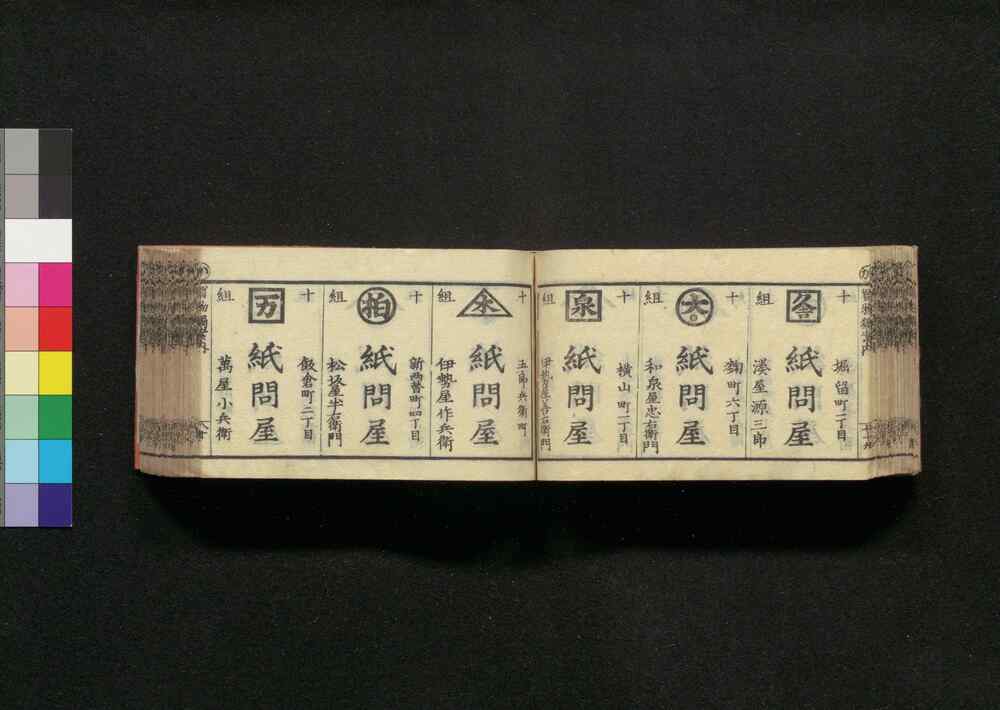 十組
堀留町二丁目
紙問屋
湊屋源三郎
十組
大
麹町六丁目
紙問屋
和泉屋忠右衛門
十組
泉
横山町二丁目
紙問屋
十組
五郎兵衛町
紙問屋
伊勢屋作兵衛
十組
柏
新両替町四丁目
紙問屋
松坂屋半右衛門
十組
万
紙問屋
萬屋小兵衛